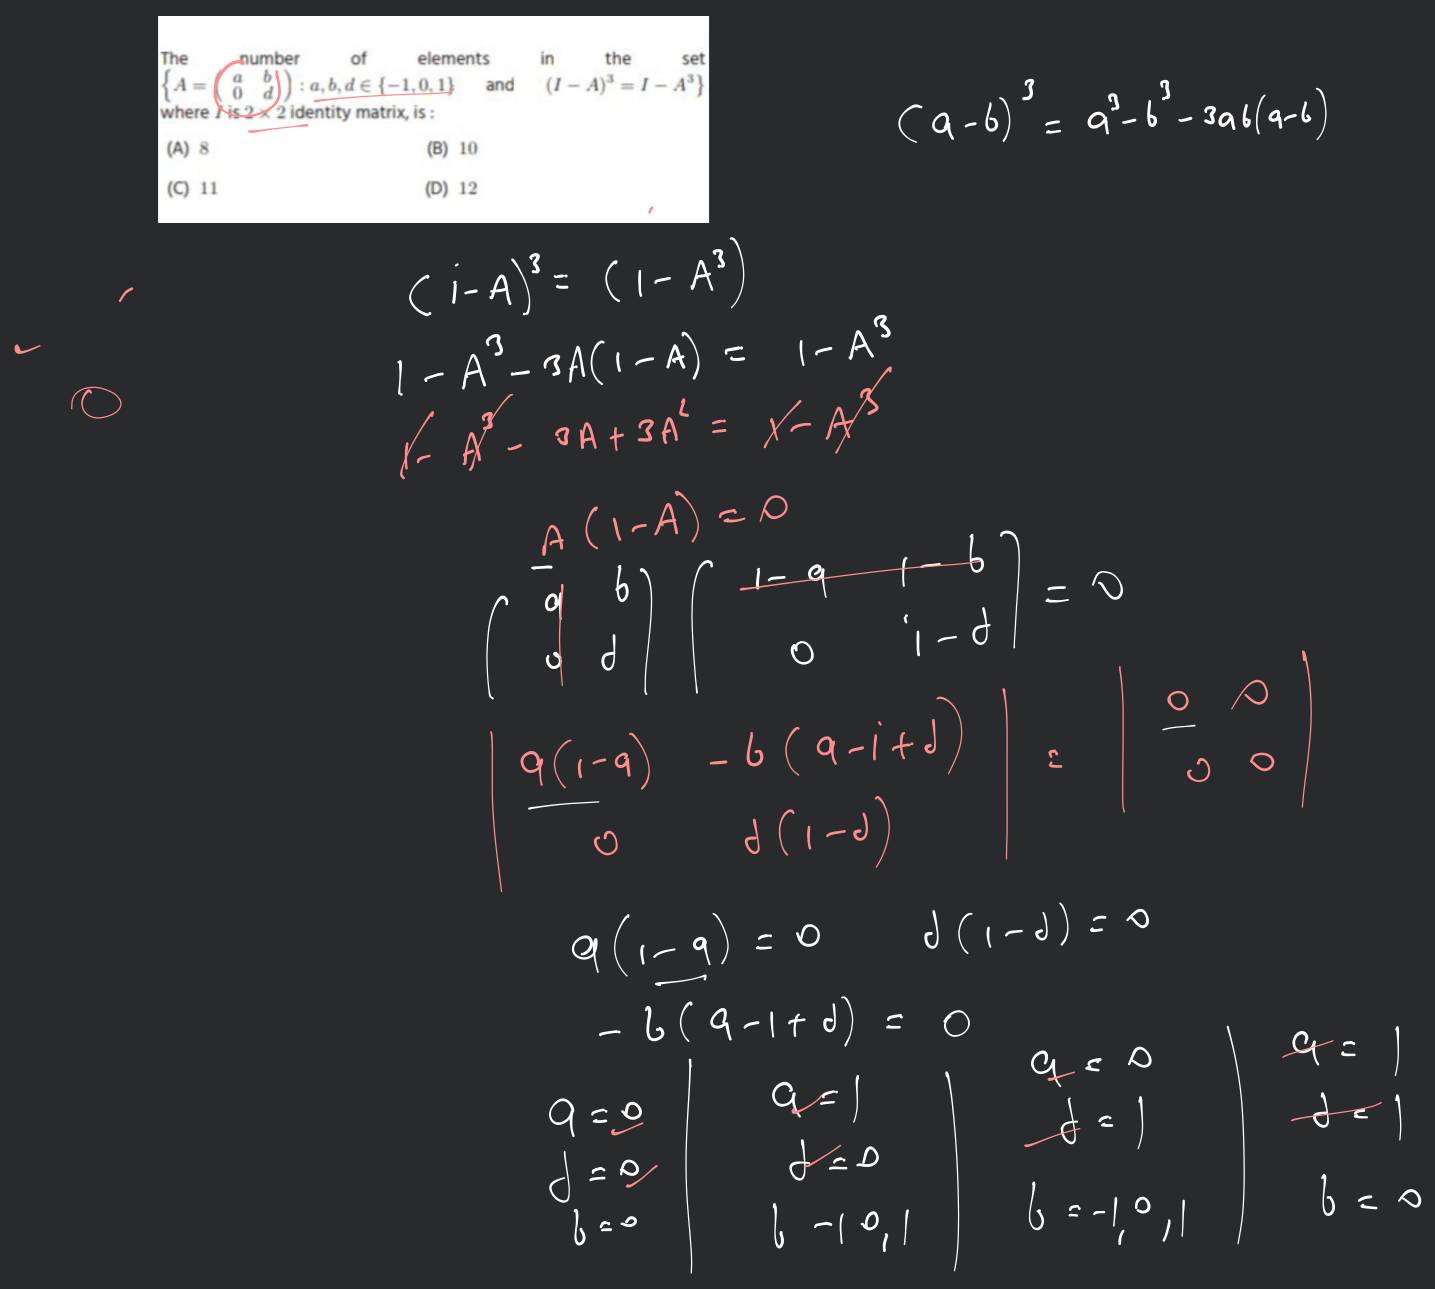 The number of elements in the set
{A = (a b 0 d) : a, b, d ∈ {-1, 0, 1} and (I − A)³ = I − A³}
where I is 2 × 2 identity matrix, is :
(A) 8 (B) 10
(C) 11 (D) 12
(a-b)³ = a³-b³-3ab(a-b)
(i-A)³ = (1-A³)
1-A³-3A(1-A) = 1-A³
1-A³-3A+3A² = 1-A³
A(1-A) = 0
a b 1-a 1-b = 0
0 d 0 1-d
a(1-a) -b(a-1+d) = 0 0
0 d(1-d) 0 0
a(1-a) = 0 d(1-d) = 0
-b(a-1+d) = 0
a=0 a=1 a=0 a=1
d=0 d=0 d=1 d=1
b=0 b -1 0,1 b=-1,0,1 b=0